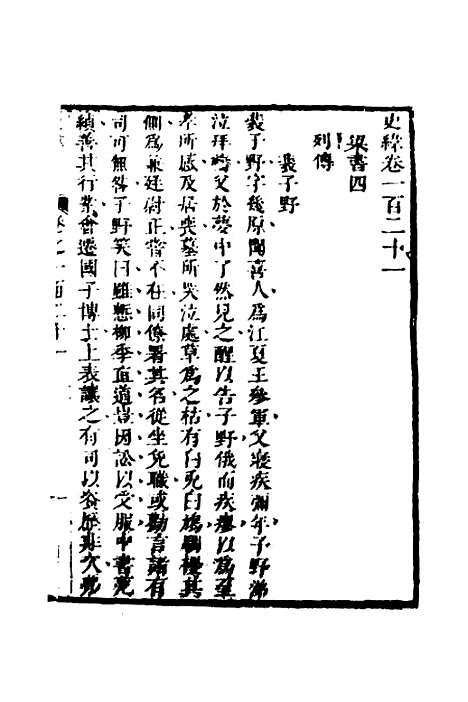 史緯卷一百二十一
梁書四
列傳
裴子野
裴子野字幾原聞喜人爲江夏王參軍父寢疾彌年子野涕
泣拜禱父於夢中了然見之醒以告子野俄而疾瘳以爲至
孝所感及居喪墓所哭泣處草爲之枯有白兔白鳩馴擾其
側爲兼廷尉正嘗不在同僚署其名從坐免職或勸言諸有
司可無咎子野笑曰雖慙柳季直道豈因訟以受服中書范
縝善其行業會遷國子博士上表讓之有司以資歷非次弗
卷之一百二十一